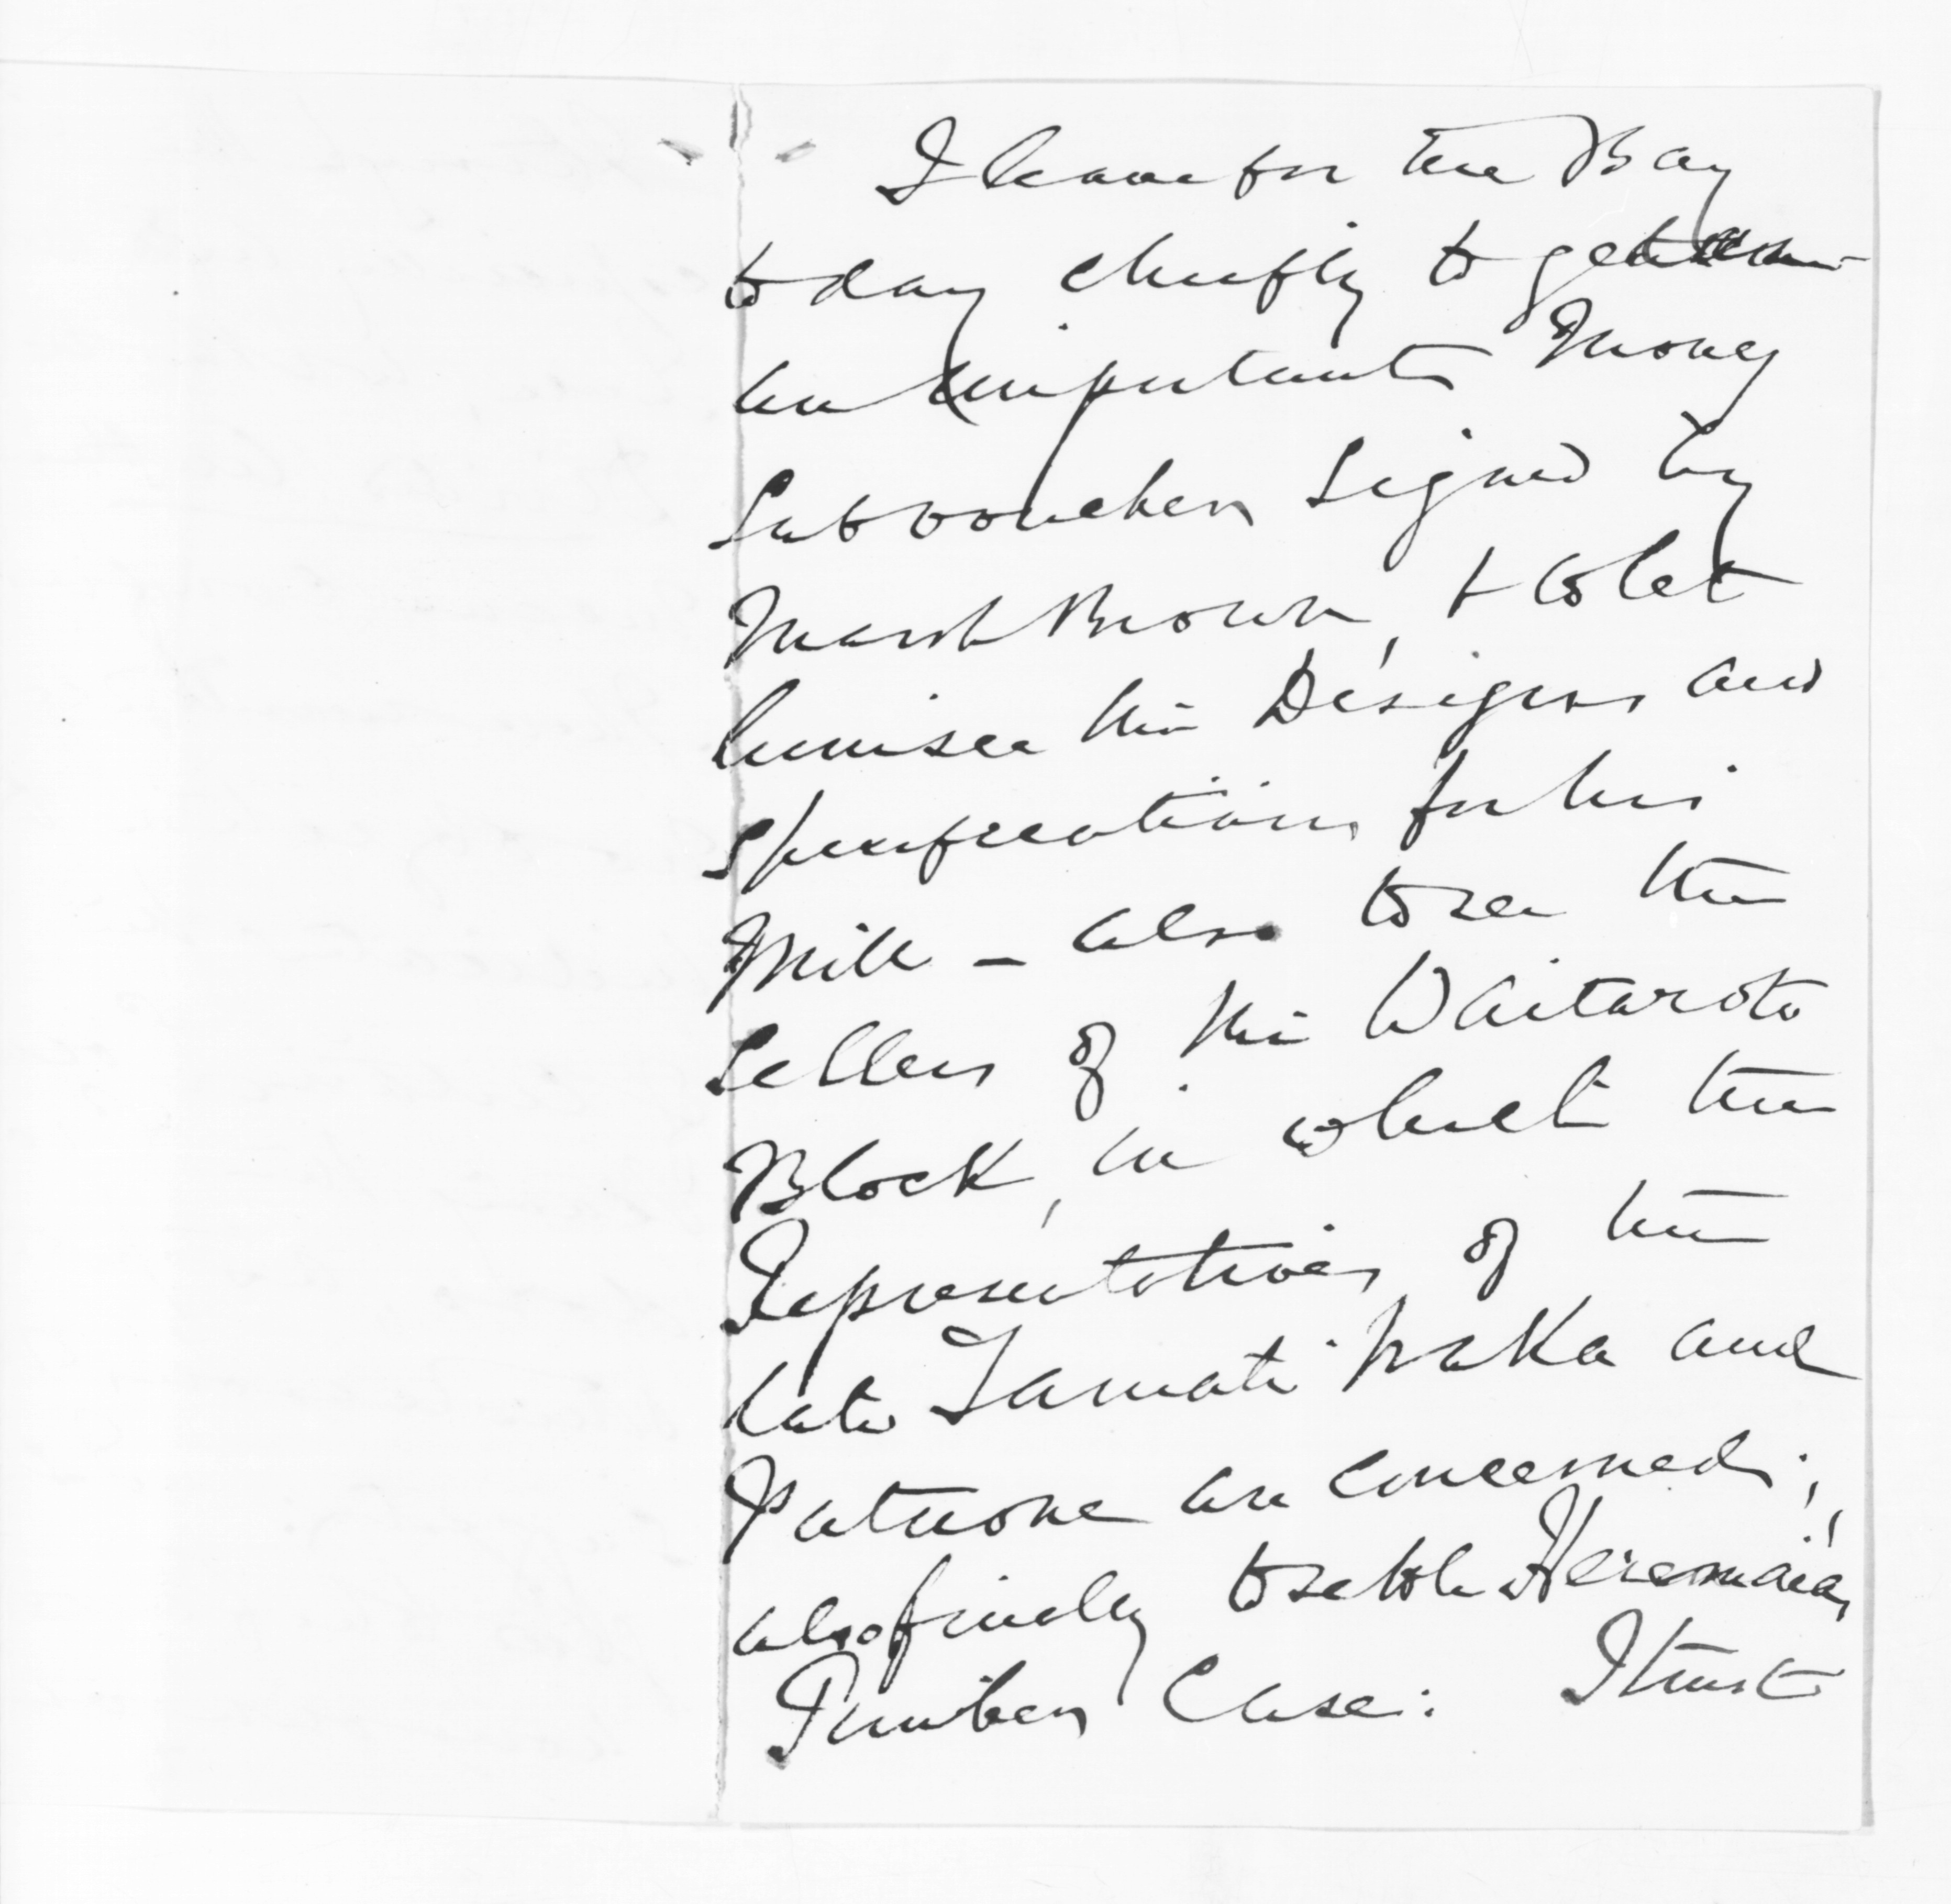 I leave for the Bay
today chiefly to get
an important Money
Sub voucher signed by
Marsh Brown, & to let
him see the Designs and
specifications for his
Mill - also to see the
Sellers of the Waitaroto
Block, in which the
Representatives of the
late Tamati Waka and
Patuone are concerned;
also finally to settle Heremaia's
Timber Case: I trust